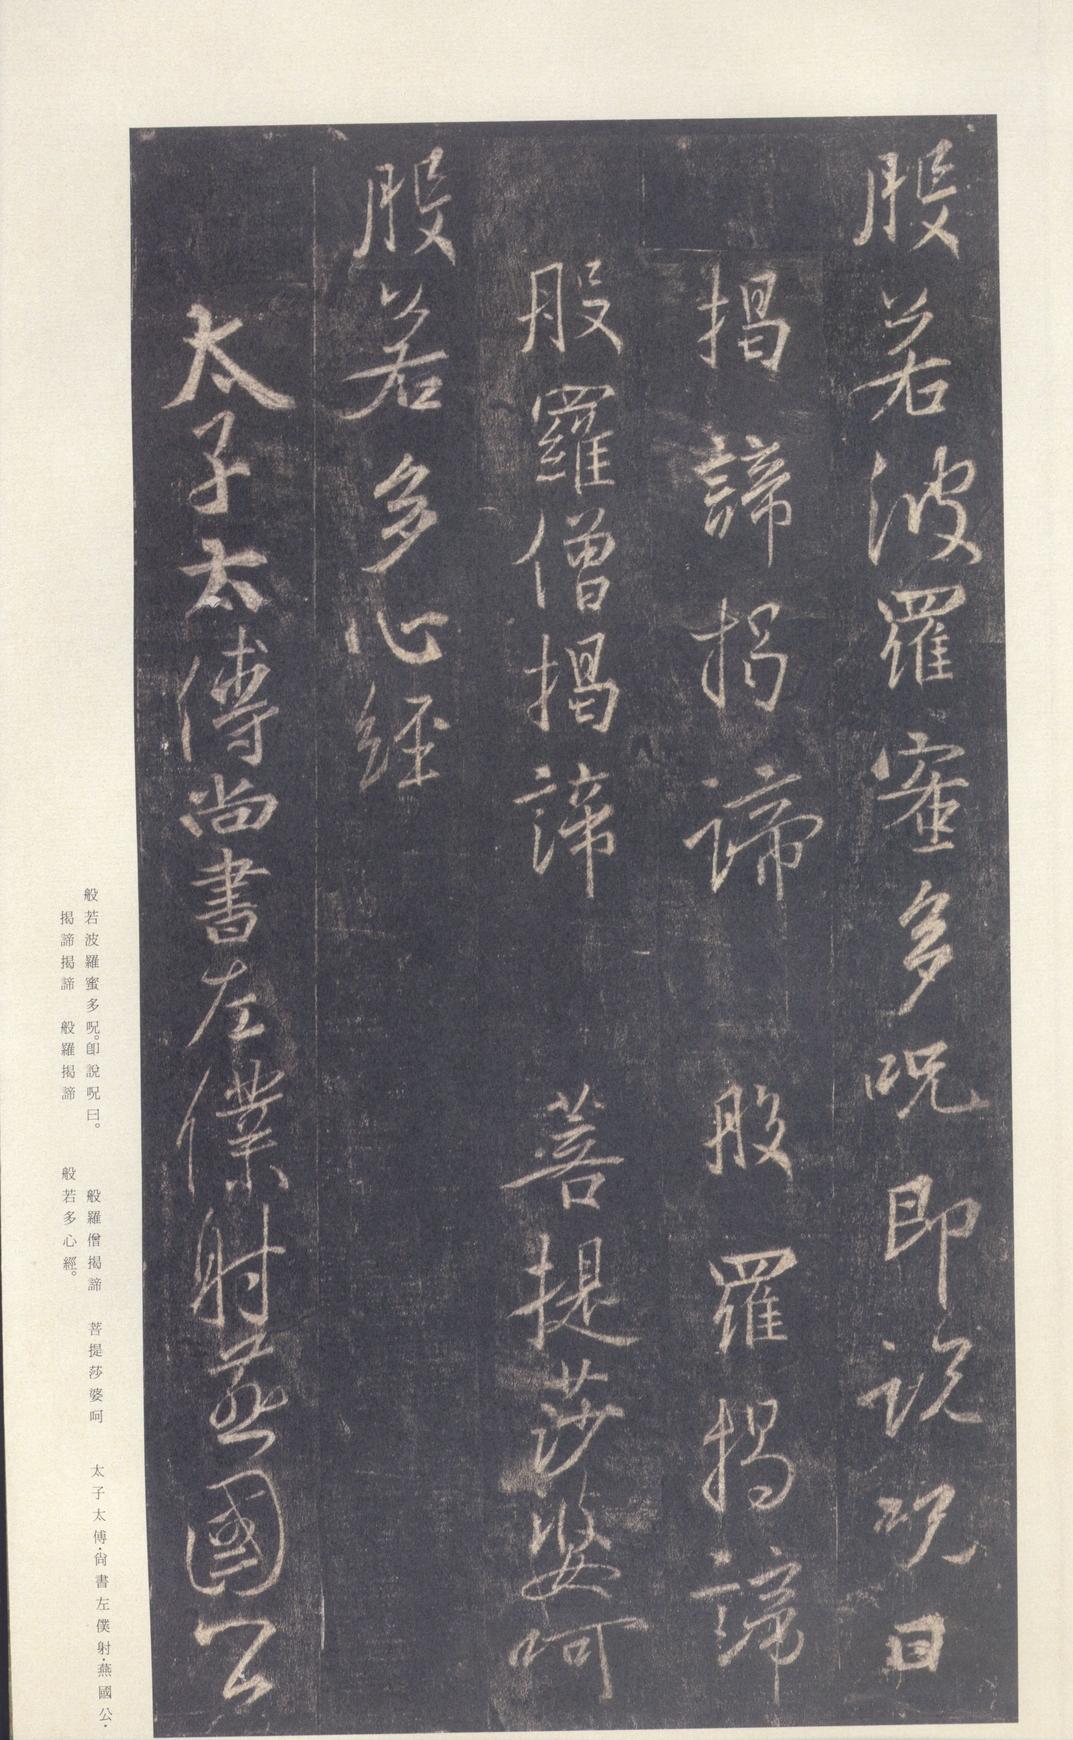 般若波羅蜜多呪即說呪曰
揭諦揭諦 般羅揭諦
般羅僧揭諦 菩提莎婆呵
般若多心經
太子太傅尚書左僕射燕國公
般若波羅蜜多呪。卽說呪曰。 般羅僧揭諦 菩提莎婆呵 太子太傅·尙書左僕射·燕國公·
揭諦揭諦 般羅揭諦 般若多心經。